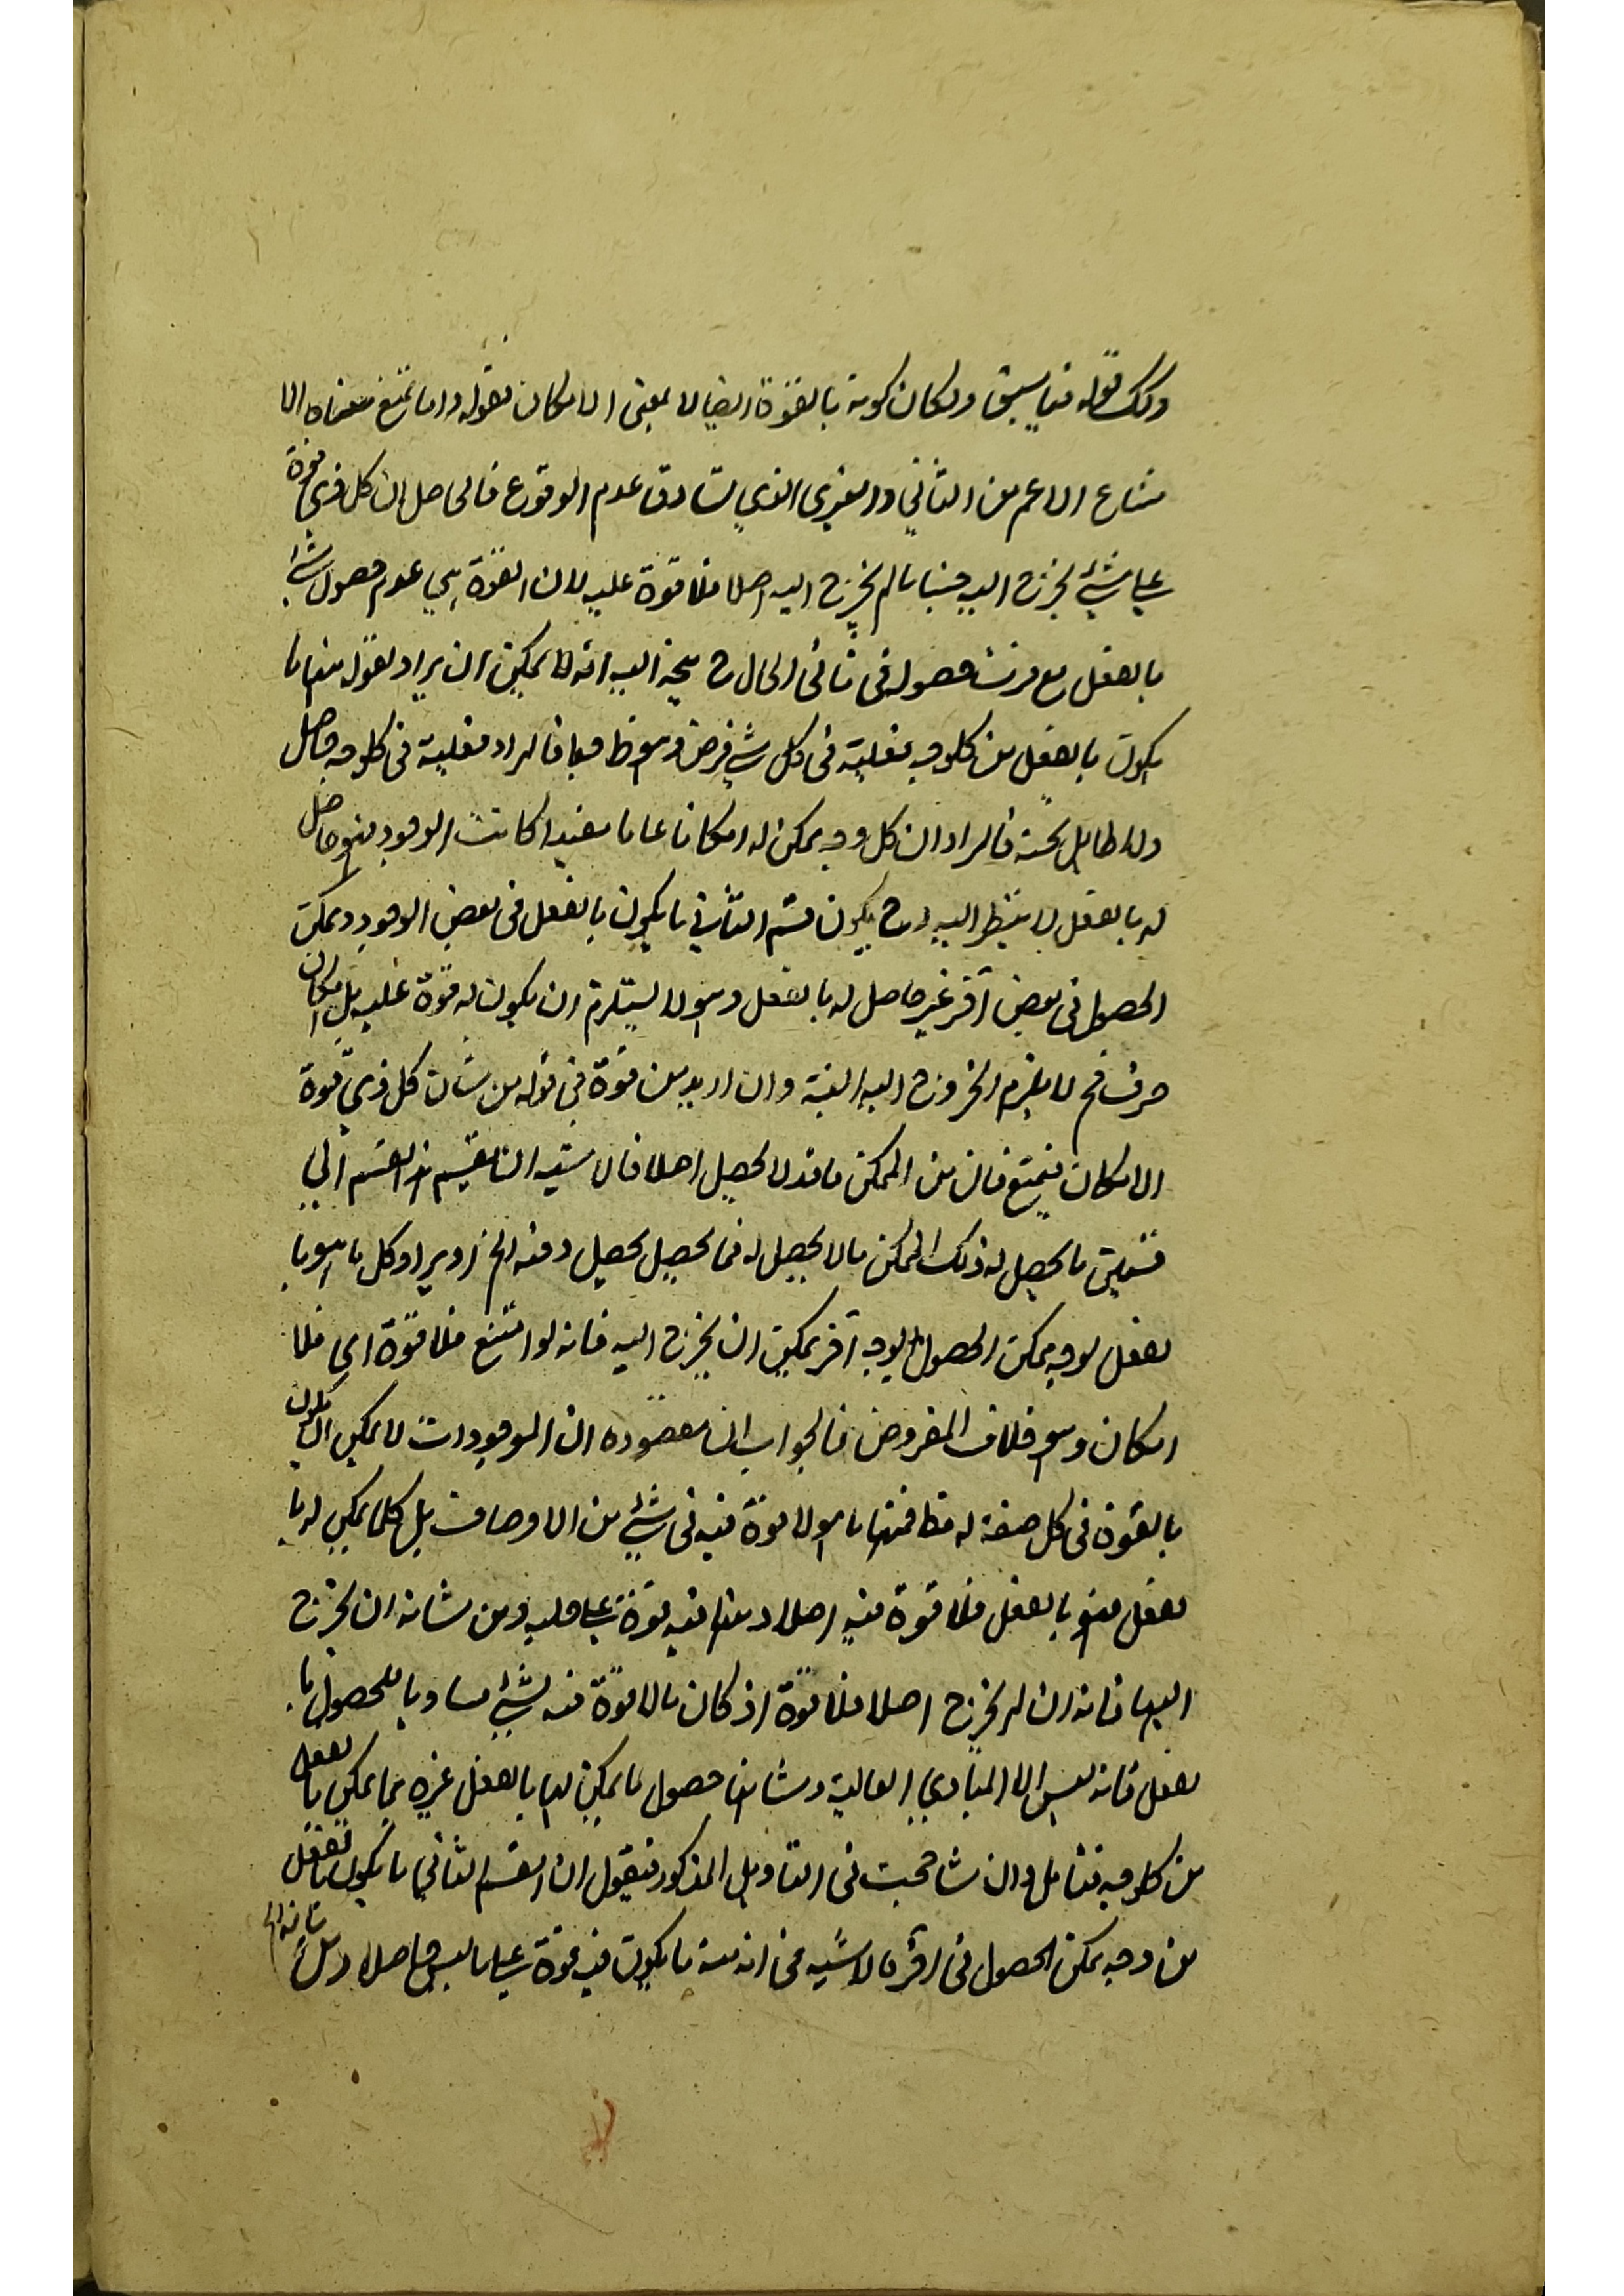 وكك قوله فيما سبق ولكان كونه بالقوة ايضا لا بمعنى الامكان فقوله واما تمتنع معناه الا
متناع الاعم من الذاتي والغيري الذي تساوق عدم الوقوع فالحاصل ان كل ذي قوة
على شيء يخرج اليه حينا ما لم يخرج اليه اصلا فلا قوة عليه لان القوة هي عدم حصول شيء
بالفعل مع حصوله في ثاني الحال ح يتجه اليه انه لا يمكن ان يراد بقوله منها ما
يكون بالفعل من كل وجه فعليته في كل شيء فرض وهو ظ فالمراد فعليته في كل وجه حاصل
ولا طايل تحته فالمراد ان كل وجه يمكن له امكانا عاما مفيدا كانت الوجود فهو حاصل
له بالفعل لا ينتظر اليه وح يكون قسم الثاني ما يكون بالفعل في بعض الوجوه ويمكن
الحصول في بعض آخر غير حاصل له بالفعل وهو لا يستلزم ان يكون له قوة عليه بل امكان
صرف فح لا يلزم الخروج اليه البتة وان اريد من قوة في قوله من شان كل ذي قوة
الامكان فيمتنع فان من الممكن ما قد لا يحصل اصلا فالاشبه ان تقسيم هذا القسم الى
قسمين ما يحصل له ذلك الممكن ما لا يحصل له فما يحصل يحصل دفعة الخ او يراد كل ما هو با
لفعل لوجه يمكن الحصول لوجه آخر يمكن ان يخرج اليه فانه لو امتنع فلا قوة اي فلا
امكان وهو خلاف المفروض فالجواب ان مقصوده ان الموجودات لا يمكن ان يكون
بالقوة في كل صفة له قط فمنها ما هو لا قوة فيه في شيء من الاوصاف بل كلما يمكن له با
لفعل فهو بالفعل فلا قوة فيه اصلا ومنها فيه قوة على حليه ومن شانه ان يخرج
اليها فانه ان لم يخرج اصلا فلا قوة اذ كان ما لا قوة فيه لشيء مساويا للحصول با
لفعل فانه ليس الا المبادي العالية وشانها حصول ما يمكن لها بالفعل غيره مما يمكن بالفعل
من كل وجه فتامل وان شاححت في التاويل المذكور فيقول ان القسم الثاني ما يكون بالفعل
من وجه يمكن الحصول في آخر فلا شبه في انه منه ما يكون فيه قوة على ما ليس حاصلا